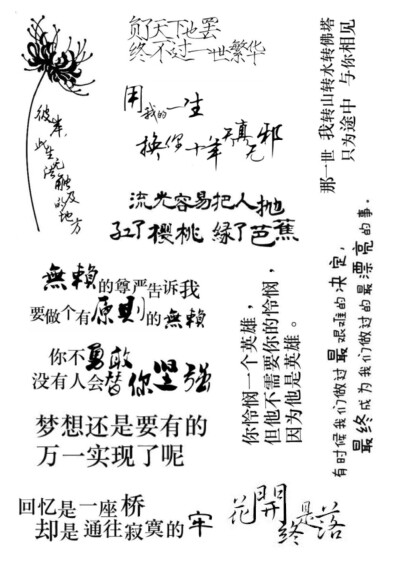 负了天下也罢
终不过一世繁华
用我的一生
换你十年天真无邪
那一世 我转山转水转佛塔
只为途中 与你相见
彼岸，
此生无法触及的地方
流光容易把人抛
红了樱桃 绿了芭蕉
無賴的尊严告诉我
要做个有原则的無赖
你不勇敢
没有人会替你坚强
梦想还是要有的
万一实现了呢
你怜悯一个英雄，
但他不需要你的怜悯，
因为他是英雄。
有时候我们做过最艰难的决定，
最终成为我们做过的最漂亮的事。
回忆是一座桥
却是通往寂寞的牢
花開
终是落